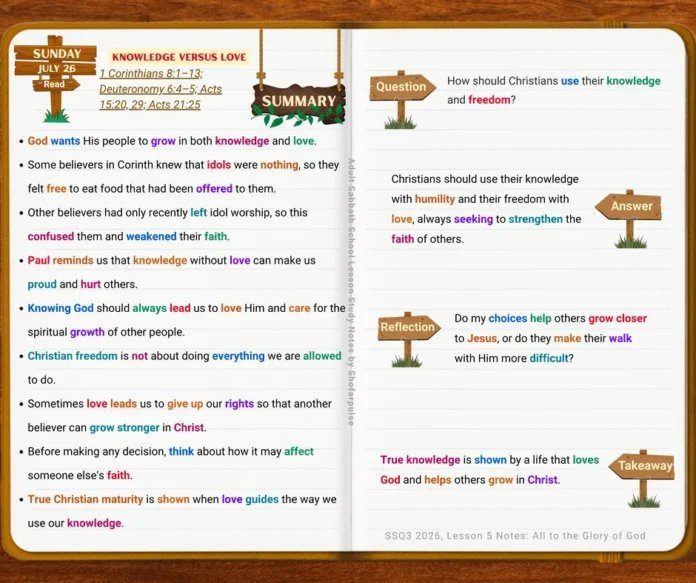 SUNDAY
JULY 26
Read
KNOWLEDGE VERSUS LOVE
1 Corinthians 8:1–13;
Deuteronomy 6:4–5; Acts
15:20, 29; Acts 21:25
SUMMARY
• God wants His people to grow in both knowledge and love.
• Some believers in Corinth knew that idols were nothing, so they
felt free to eat food that had been offered to them.
• Other believers had only recently left idol worship, so this
confused them and weakened their faith.
• Paul reminds us that knowledge without love can make us
proud and hurt others.
• Knowing God should always lead us to love Him and care for the
spiritual growth of other people.
• Christian freedom is not about doing everything we are allowed
to do.
• Sometimes love leads us to give up our rights so that another
believer can grow stronger in Christ.
• Before making any decision, think about how it may affect
someone else's faith.
• True Christian maturity is shown when love guides the way we
use our knowledge.
Adult Sabbath School Lesson Study Notes by Shofarpulse
Question
How should Christians use their knowledge
and freedom?
Christians should use their knowledge
with humility and their freedom with
love, always seeking to strengthen the
faith of others.
Answer
Reflection
Do my choices help others grow closer
to Jesus, or do they make their walk
with Him more difficult?
True knowledge is shown by a life that loves
God and helps others grow in Christ.
Takeaway
SSQ3 2026, Lesson 5 Notes: All to the Glory of God